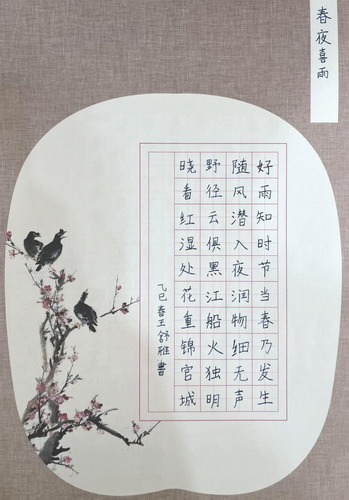 春夜喜雨
好雨知时节当春乃发生
随风潜入夜润物细无声
野径云俱黑江船火独明
晓看红湿处花重锦官城
乙巳春王舒雅书